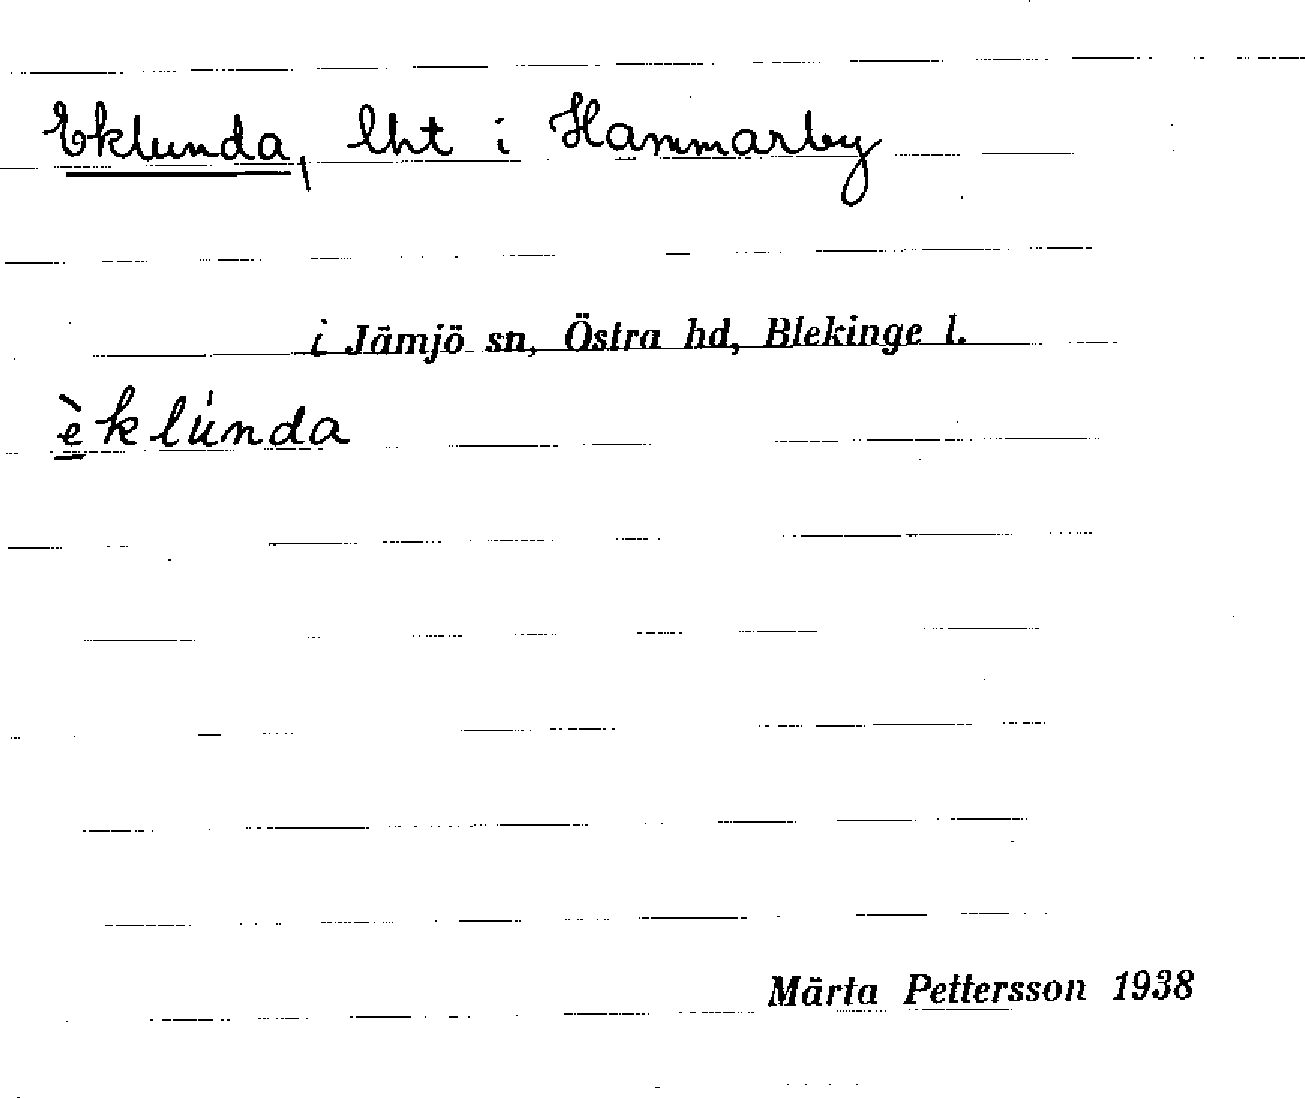 Eklunda, lht i Hammarby
i Jämjö sn, Östra hd, Blekinge l.
èklúnda
Märta Pettersson 1938